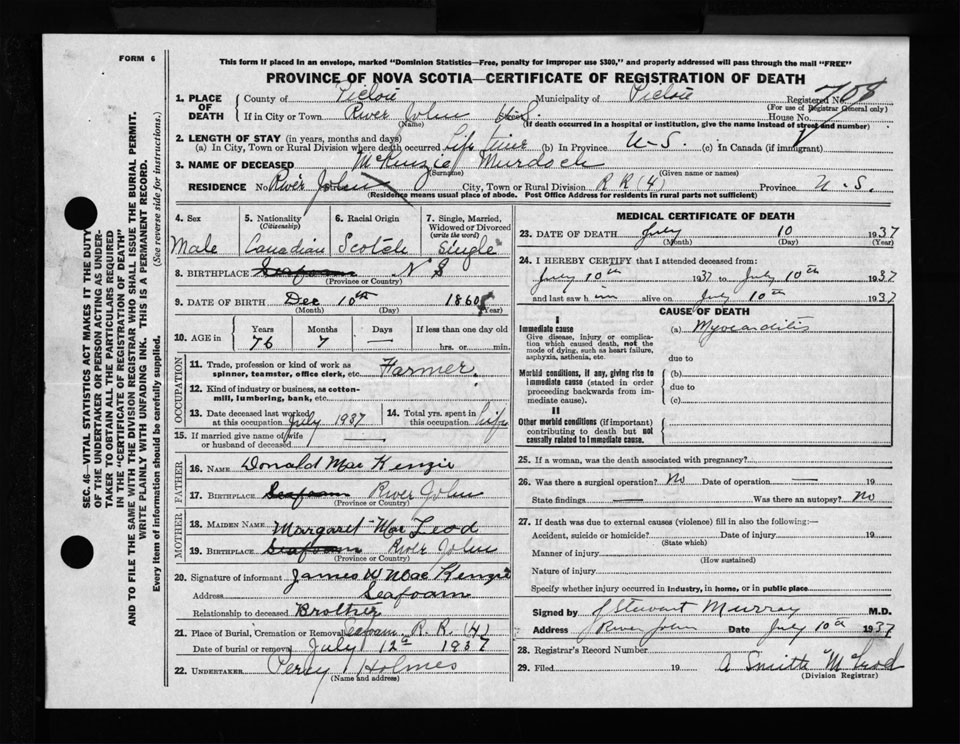 FORM 6
This form if placed in an envelope, marked "Dominion Statistics—Free, penalty for improper use $300," and properly addressed will pass through the mail "FREE"
PROVINCE OF NOVA SCOTIA—CERTIFICATE OF REGISTRATION OF DEATH
1. PLACE OF DEATH
County of Pictou Municipality of Pictou Registered No. 708
(For use of Registrar General only)
If in City or Town River John N.S. House No.
(Name) (If death occurred in a hospital or institution, give the name instead of street and number)
2. LENGTH OF STAY (in years, months and days)
(a) In City, Town or Rural Division where death occurred Life time (b) In Province N-S. (c) in Canada (if immigrant)
3. NAME OF DECEASED McKenzie Murdoch
(Surname) (Given name or names)
RESIDENCE No. River John City, Town or Rural Division R R (4) Province N-S.
(Residence means usual place of abode. Post Office Address for residents in rural parts not sufficient)
4. Sex
Male
5. Nationality
(Citizenship)
Canadian
6. Racial Origin
Scotch
7. Single, Married, Widowed or Divorced
(write the word)
Single
8. BIRTHPLACE Seafoam N S
(Province or Country)
9. DATE OF BIRTH Dec 10th 1860
(Month) (Day) (Year)
10. AGE in
Years Months Days If less than one day old
76 7 — hrs. or min.
OCCUPATION
11. Trade, profession or kind of work as spinner, teamster, office clerk, etc. Farmer.
12. Kind of industry or business, as cotton-mill, lumbering, bank, etc.
13. Date deceased last worked at this occupation July 1937
14. Total yrs. spent in this occupation Life
15. If married give name of wife or husband of deceased —
FATHER
16. Name Donald Mac Kenzie
17. Birthplace Seafoam River John
(Province or Country)
MOTHER
18. Maiden Name Margaret Mac Leod
19. Birthplace Seafoam River John
(Province or Country)
20. Signature of informant James W Mac Kenzie
Address Seafoam
Relationship to deceased Brother
21. Place of Burial, Cremation or Removal Seafoam. R. R. (4)
Date of burial or removal July 12th 1937
22. UNDERTAKER Percy Holmes
(Name and address)
MEDICAL CERTIFICATE OF DEATH
23. DATE OF DEATH July 10 1937
(Month) (Day) (Year)
24. I HEREBY CERTIFY that I attended deceased from:
July 10th 1937 to July 10th 1937
and last saw h im alive on July 10th 1937
CAUSE OF DEATH
I
Immediate cause (a) Myocarditis
Give disease, injury or complication which caused death, not the mode of dying, such as heart failure, asphyxia, asthenia, etc.
due to
Morbid conditions, if any, giving rise to immediate cause (stated in order proceeding backwards from immediate cause).
(b)
due to
(c)
II
Other morbid conditions (if important) contributing to death but not causally related to immediate cause.
25. If a woman, was the death associated with pregnancy?
26. Was there a surgical operation? No Date of operation — 19
State findings — Was there an autopsy? No
27. If death was due to external causes (violence) fill in also the following:—
Accident, suicide or homicide? Date of injury 19
(State which)
Manner of injury
(How sustained)
Nature of injury
Specify whether injury occurred in industry, in home, or in public place
Signed by J Stewart Murray M.D.
Address River John Date July 10th 1937
28. Registrar's Record Number
29. Filed 19 A Smith McLeod
(Division Registrar)
SEC. 46—VITAL STATISTICS ACT MAKES IT THE DUTY
OF THE UNDERTAKER OR PERSON ACTING AS UNDER-
TAKER TO OBTAIN ALL THE PARTICULARS REQUIRED
IN THE "CERTIFICATE OF REGISTRATION OF DEATH"
AND TO FILE THE SAME WITH THE DIVISION REGISTRAR WHO SHALL ISSUE THE BURIAL PERMIT.
WRITE PLAINLY WITH UNFADING INK. THIS IS A PERMANENT RECORD.
Every item of information should be carefully supplied. (See reverse side for instructions.)